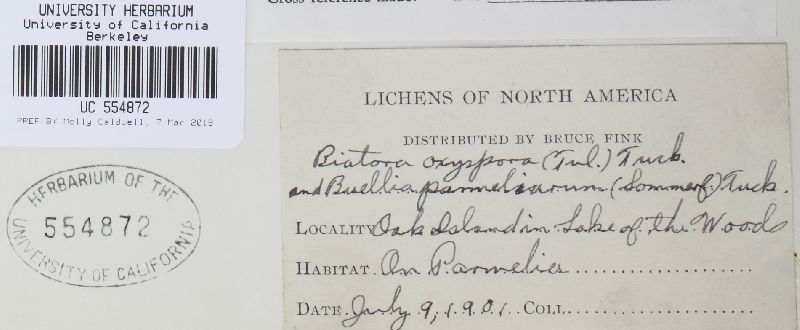 UNIVERSITY HERBARIUM
University of California
Berkeley
UC 554872
PREP BY Molly Caldwell, 7 Mar 2018
HERBARIUM OF THE
554872
UNIVERSITY OF CALIFORNIA
LICHENS OF NORTH AMERICA
DISTRIBUTED BY BRUCE FINK
Biatora oxyspora (Tul.) Tuck.
and Buellia parmeliarum (Sommerf.) Tuck.
LOCALITY Oak Island in Lake of the Woods
HABITAT. On Parmelia
DATE. July 9, 1901. COLL.